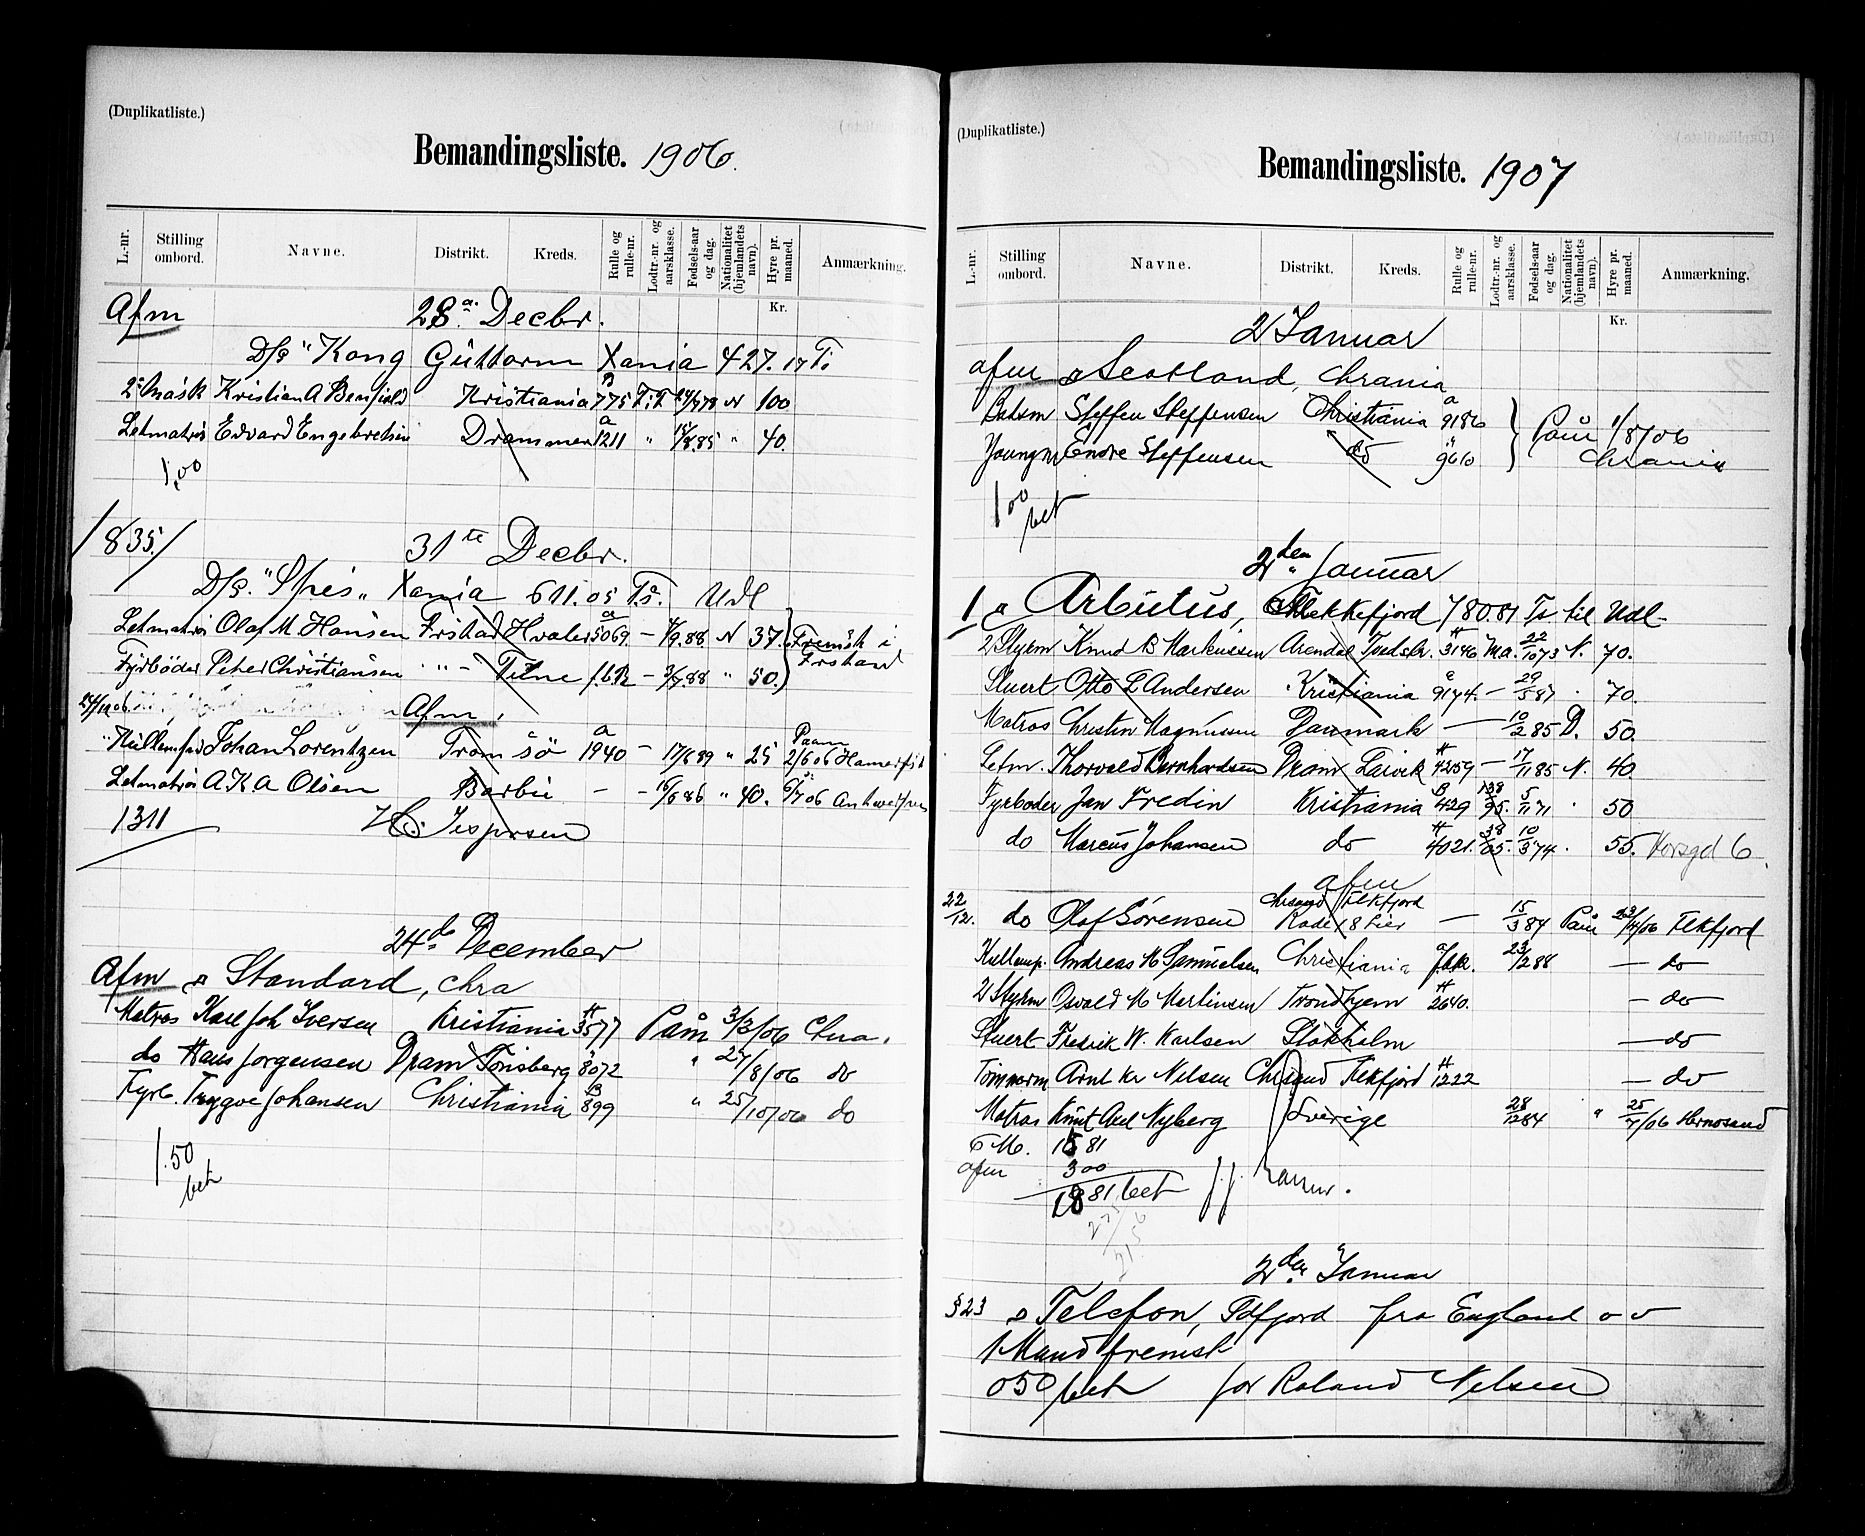 (Duplikatliste.)
Bemandingsliste. 1906.
L.-nr.
Stilling ombord.
Navne.
Distrikt.
Kreds.
Rulle og rulle-nr.
Lodtr.-nr. og aarsklasse.
Fødsels-aar og dag.
Nationalitet (hjemlandets navn).
Hyre pr. maaned.
Anmærkning.
Kr.
Afm 28 Decbr.
D/S "Kong Guttorm Xania 427.17 T.
2 Mask Kristian A Benfield Kristiania B 775 N 100
Letmatros Edvard Engebretsen Drammen a 1211 " 85 " 40.
1,00
/835./ 31te Decbr.
D/S. "Spes" Xania 611.05 Ts. Udl
Letmatros Olaf M Hansen Frstad Hvaler a 5069 - 88. N 37. Fremsk i
Fyrbøder Peter Christiansen " - - 88 " 50. Frstad
Afm.
" Johan Lorentzen Tromsø a 1940 - 17/6 89 " 25 Paam 2/6 06
Letmatros A.K.A Olsen Barbu - - 16/ 86 " 40. 06
1311 Jespersen
24de December
Afm s Standard, Chra
Matros Karl Joh Iversen Kristiania H 3577 Paam 3/3/06 Chra.
do Hans Jorgensen Dram Tønsberg 8072 " 27/8/06 do
Fyrb. Trygve Johansen Christiania B 899 " 25/10/06 do
1.50
bet
(Duplikatliste.)
Bemandingsliste. 1907
L.-nr.
Stilling ombord.
Navne.
Distrikt.
Kreds.
Rulle og rulle-nr.
Lodtr.-nr. og aarsklasse.
Fødsels-aar og dag.
Nationalitet (hjemlandets navn).
Hyre pr. maaned.
Anmærkning.
Kr.
2 Januar
afm s Scotland, Chrania
Batsm Steffen Steffensen Christiania a 9186 Paam 1/8/06
Youngm Endre Steffensen do " 9610 Chrania
1 00
bet
2den Januar
1 s Arbutus, Flekkefjord 780.81 Ts til Udl
2 Styrm Knud B Markussen Arendal Tvedstr. H 3146 Ma. 22/10 73 N. 70.
Stuert Otto L Andersen Kristiania a 9174. - 29/5 87 · 70.
Matros Christen Magnussen Danmark - 10/2 85 D. 50
Letm. Thorvald Bernhardsen Dram Larvik H 4259 - 17/11 85 N. 40
Fyrboder Jan Fredin Kristiania B 429 138/95. 5/11 71 · 50
do Marcus Johansen do H 4021. 38/05. 10/3 74 · 55. 6.
afm
22/12. do Olaf Sörensen Chrsand Flkfjord - 15/3 84 Paam 06 Flkfjord
Andreas M Samuelsen Christiania 23/2 88 - do
2 Styrm Osvald M Martinsen Trondhjem H 2640. - do
Stuert Fredrik W. Karlsen Stokholm - do
Tömmerm Arnt Kr Nilsen Chrsand Flkfjord H 1222 - do
Matros Knut Axel Nyberg Sverige 28/12 84 " 25/7/06 Hernosand
T M. 15 81
afm 3 00
18 81 bet
2den Januar
§ 23 s Telefon, Tdfjord fra England o v
1 Mand fremsk
0 50 bet for Roland Nelsen